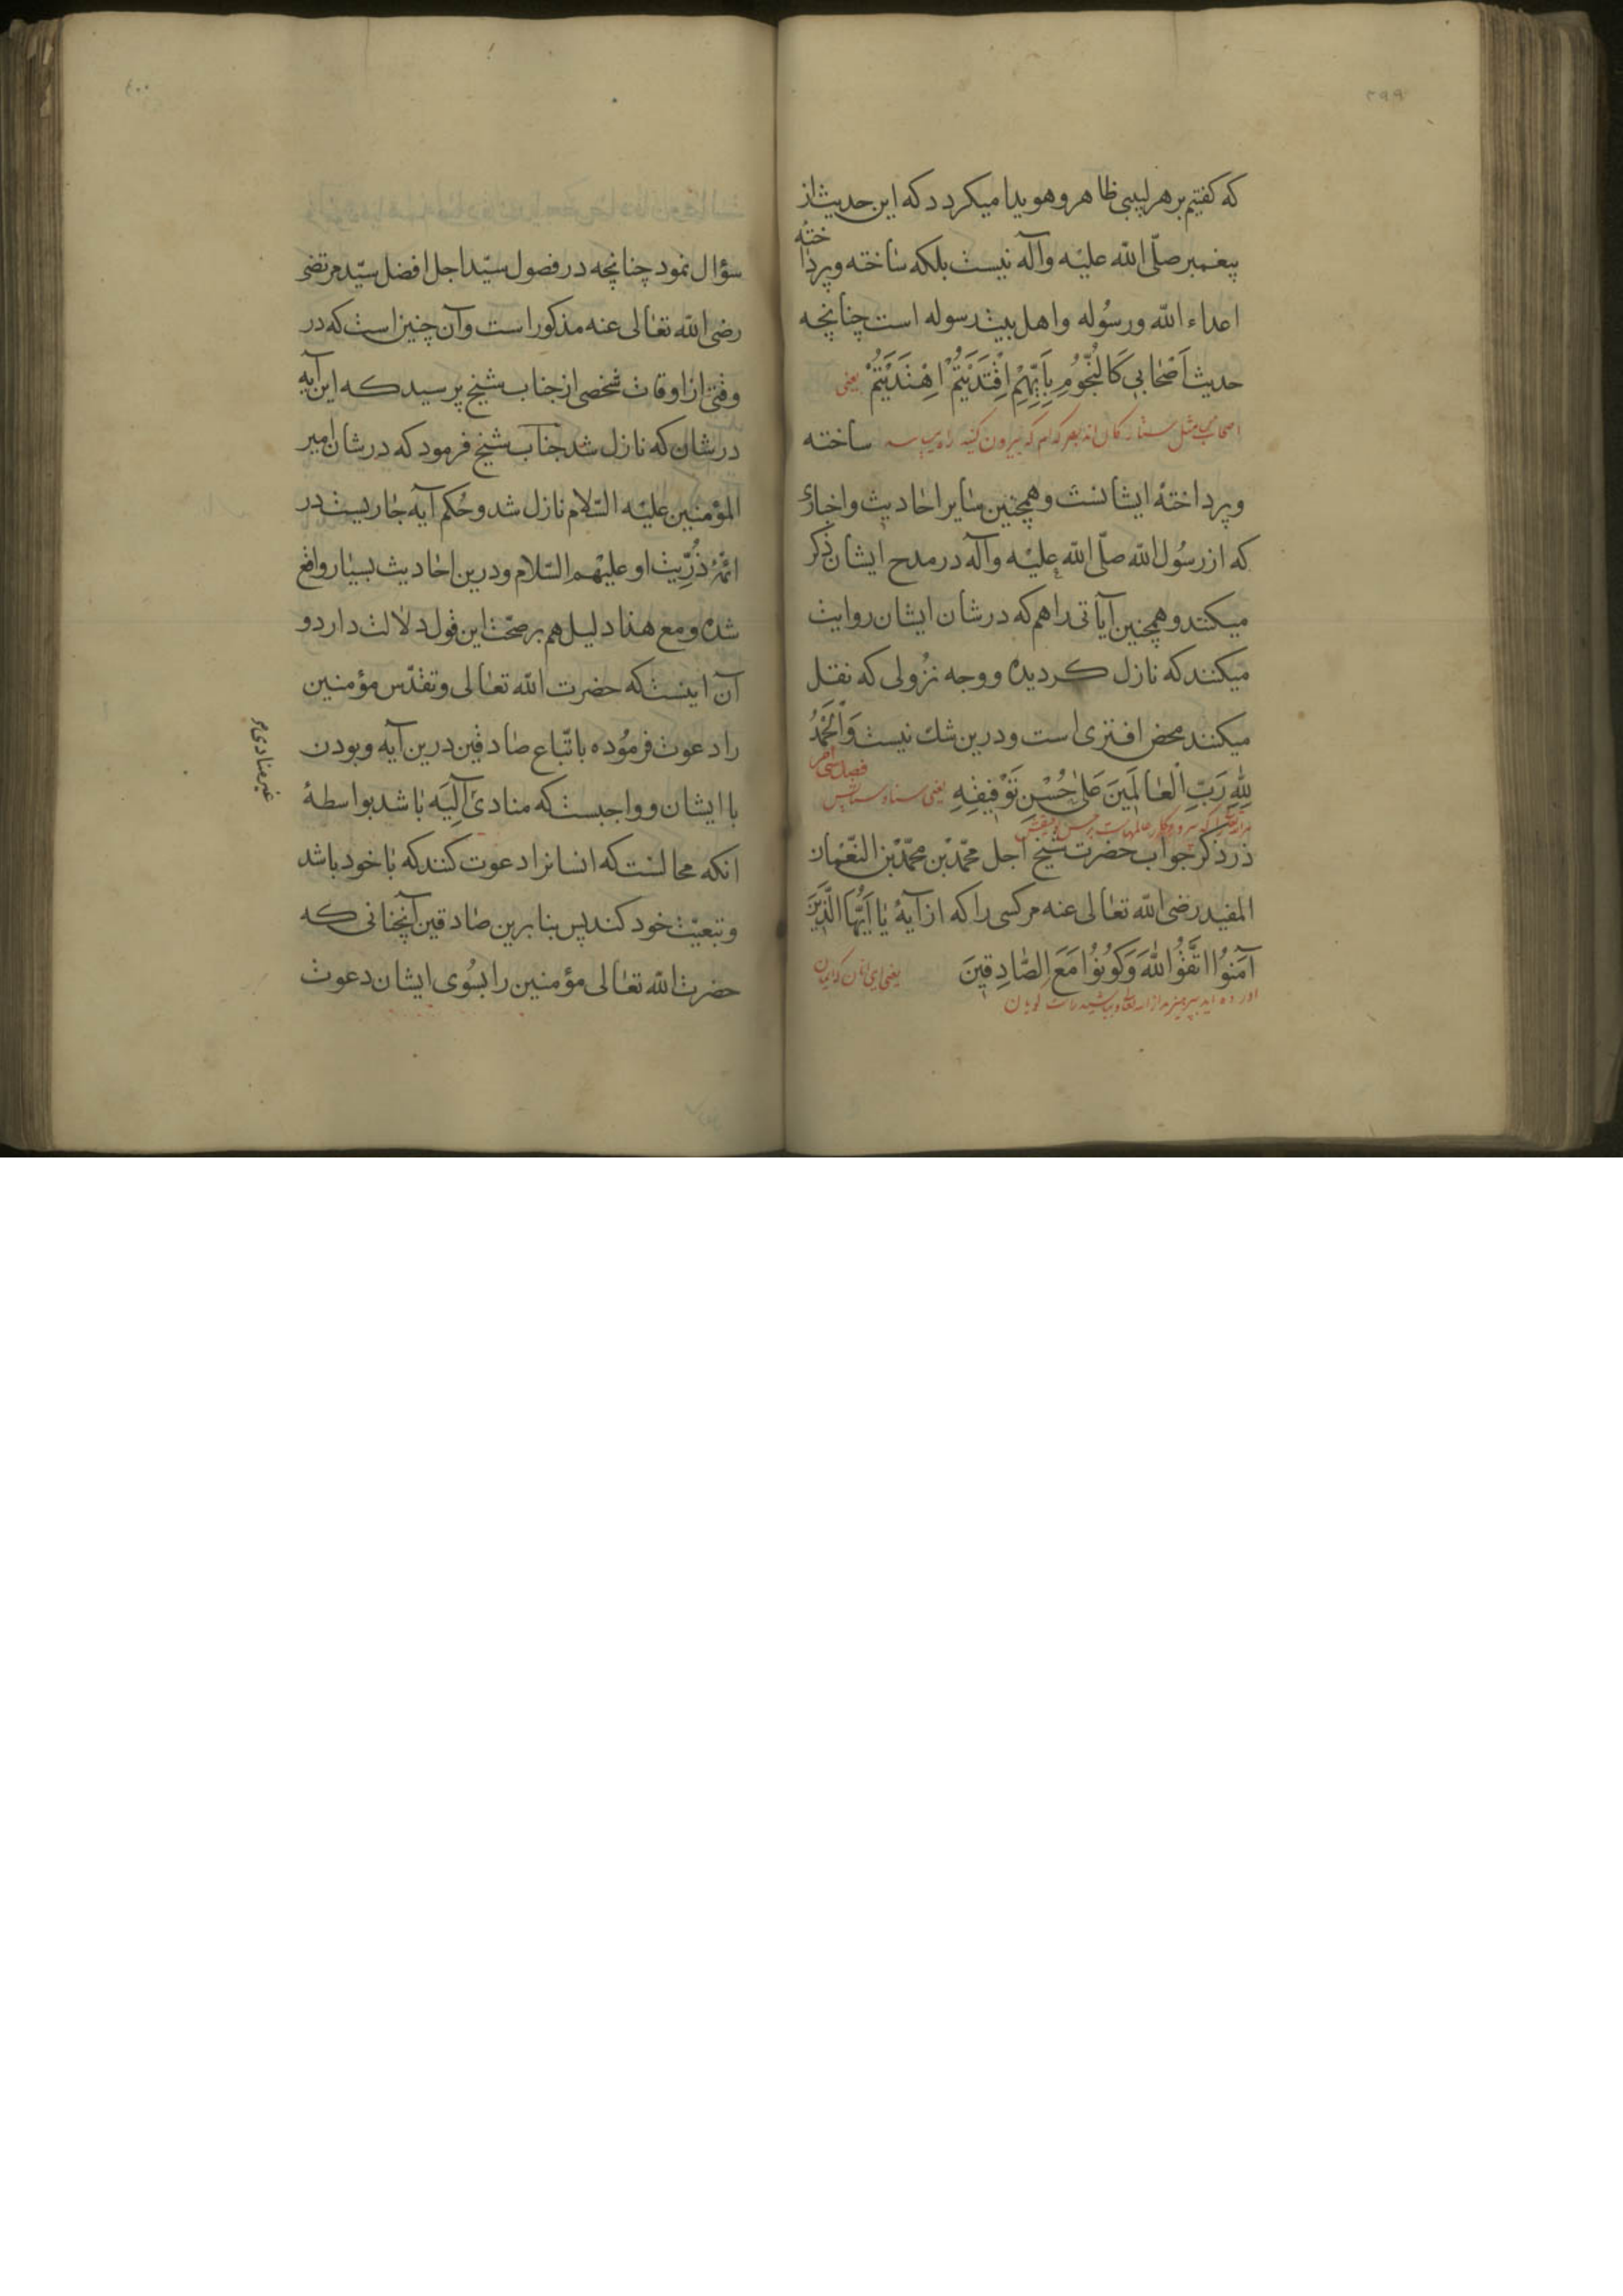 ۳۹۹
که کفتیم بر هر لبیبی ظاهر و هویدا میکردد که این حدیث از
پیغمبر صلّی الله علیه وآله نیست بلکه ساخته و پرداخته
اعداء الله ورسُوله واهل بیت رسوله است چنانچه
حدیث اَصْحابی کَالنُّجُومِ بِاَیِّهِمْ اِقْتَدَیْتُمْ اِهْتَدَیْتُمْ یعنی
اصحاب من مثل ستارکان اند بهر کدام که پیرون کنید راه می یابید ساخته
وپرداختهٔ ایشانست وهمچنین سایر احادیث واخبار
که از رسُول الله صلّی الله علیه وآله در مدح ایشان ذکر
میکنند وهمچنین آیاتی را هم که در شان ایشان روایت
میکنند که نازل کردیده ووجه نزُولی که نقل
میکنند محض افتری است ودرین شك نیست وَالْحَمْدُ
لِلّٰهِ رَبِّ الْعٰالَمِینَ عَلٰی حُسْنِ تَوْفیقِهِ یعنی سپاس
که پروردکار عالمهاست بر حسن توفیقش
فصل سی
در ذکر جواب حضرت شیخ اجل محمّد بْن محمّد بْن النّعْمان
المفید رضی الله تعالی عنه مر کسی را که از آیهٔ یٰا اَیُّهَا الَّذینَ
آمَنُوا اتَّقُوا اللّٰهَ وَکُونُوا مَعَ الصّٰادِقینَ یعنی ای آنان که ایمان
آورده اید بپرهیزید از الله تعالی وباشید با راست کویان
۴۰۰
سؤال نمود چنانچه در فصول سیّد اجل افضل سیّد مرتضی
رضی الله تعالی عنه مذکور است وآن چنین است که در
وقتی از اوقات شخصی از جناب شیخ پرسید که این آیه
در شان که نازل شد جناب شیخ فرمود که در شان امیر
المؤمنین علیه السّلام نازل شد وحُکم آیه جاریست در
ائمّهٔ ذُرِّیت او علیهم السّلام ودرین احادیث بسیار واقع
شده ومع هذا دلیل هم بر صحّت این قول دلالت دارد و
آن اینست که حضرت الله تعالی وتقدّس مؤمنین
را دعوت فرمُوده باتّباع صادقین درین آیه وبودن
با ایشان وواجبست که منادیٰ اِلَیَه باشد بواسطهٔ
غیر منادی
انکه محالست که انسانرا دعوت کنند که با خود باشد
وتبعیّت خود کند پس بنا برین صادقین آنچنانی که
حضرت الله تعالی مؤمنین را بسُوی ایشان دعوت